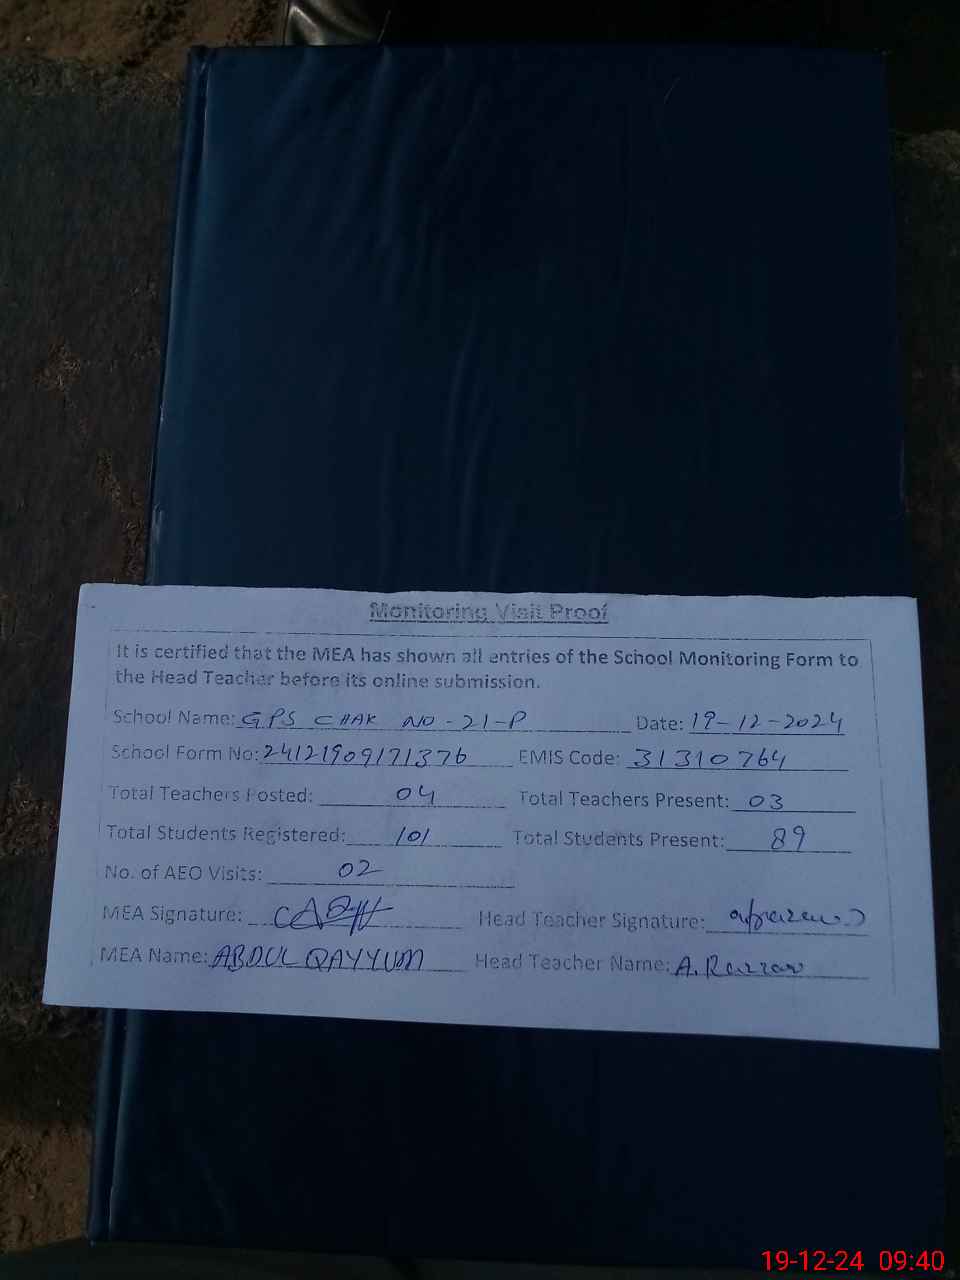 Monitoring Visit Proof
It is certified that the MEA has shown all entries of the School Monitoring Form to
the Head Teacher before its online submission.
School Name: GPS CHAK NO-21-P Date: 19-12-2024
School Form No: 24121909171376 EMIS Code: 31310764
Total Teachers Posted: 04 Total Teachers Present: 03
Total Students Registered: 101 Total Students Present: 89
No. of AEO Visits: 02
MEA Signature: Head Teacher Signature:
MEA Name: ABDUL QAYYUM Head Teacher Name: A.
19-12-24 09:40